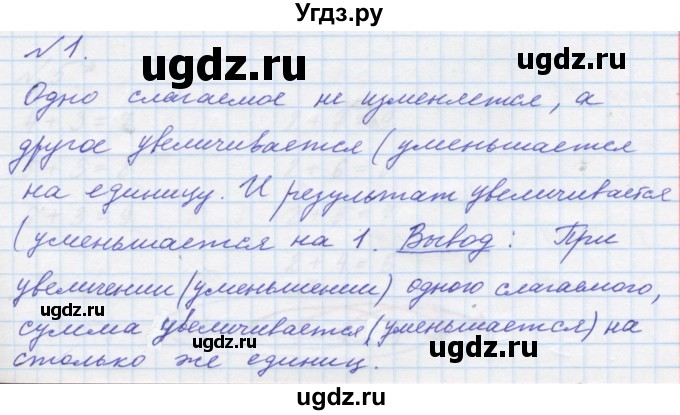 Угдз.ру
№1.
ugdz.ru ugdz.ru
Одно слагаемое не изменяется, а
другое увеличивается (уменьшается
на единицу. И результат увеличивается
(уменьшается на 1. Вывод: При
увеличении (уменьшении) одного слагаемого,
сумма увеличивается (уменьшается) на
столько же единиц.
ugdz.ru ugdz.ru
ugdz.ru ugdz.ru
ugdz.ru